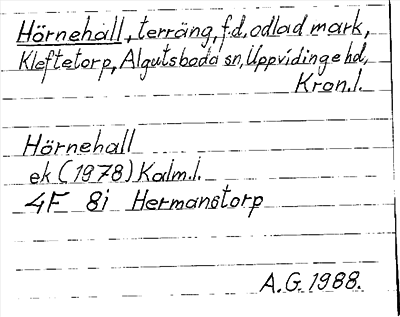 Hörnehall, terräng, f.d. odlad mark,
Kleftetorp, Algutsboda sn, Uppvidinge hd,
Kron.l.
Hörnehall
ek (1978) Kalm.l.
4F 8i Hermanstorp
A.G. 1988.